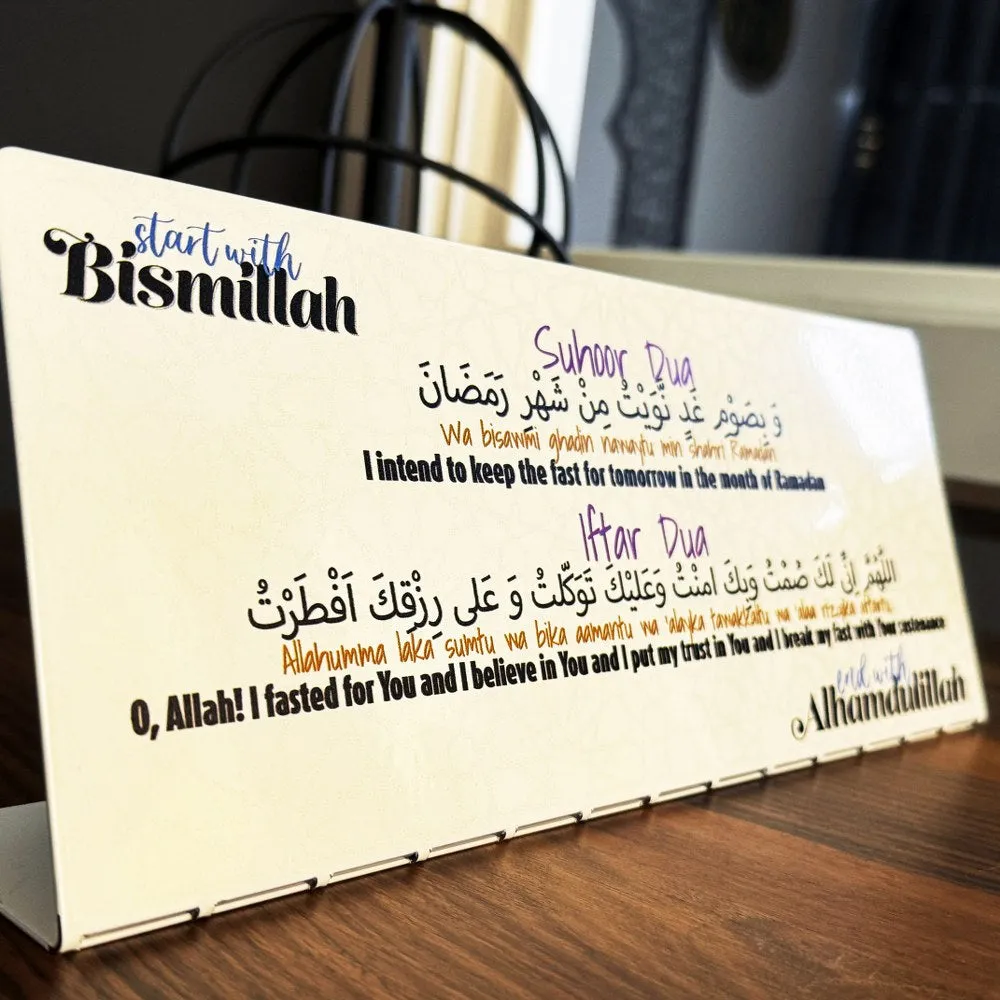 start with
Bismillah
Suhoor Dua
وَ بِصَوْمِ غَدٍ نَّوَيْتُ مِنْ شَهْرِ رَمَضَانَ
Wa bisawmi ghadin nawaytu min shahri Ramadan
I intend to keep the fast for tomorrow in the month of Ramadan
Iftar Dua
اللَّهُمَّ اِنِّى لَكَ صُمْتُ وَبِكَ امَنْتُ وَعَلَيْكَ تَوَكَّلتُ وَ عَلى رِزْقِكَ اَفْطَرْتُ
Allahumma laka sumtu wa bika aamantu wa 'alayka tawakkaltu wa 'alaa rizqika aftartu
O, Allah! I fasted for You and I believe in You and I put my trust in You and I break my fast with Your sustenance
end with
Alhamdulillah